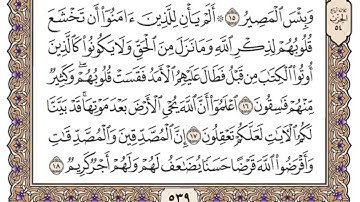 وَبِئْسَ ٱلْمَصِيرُ ١٥ أَلَمْ يَأْنِ لِلَّذِينَ ءَامَنُوٓا۟ أَن تَخْشَعَ
قُلُوبُهُمْ لِذِكْرِ ٱللَّهِ وَمَا نَزَلَ مِنَ ٱلْحَقِّ وَلَا يَكُونُوا۟ كَٱلَّذِينَ
أُوتُوا۟ ٱلْكِتَـٰبَ مِن قَبْلُ فَطَالَ عَلَيْهِمُ ٱلْأَمَدُ فَقَسَتْ قُلُوبُهُمْ ۖ وَكَثِيرٌ
مِّنْهُمْ فَـٰسِقُونَ ١٦ ٱعْلَمُوٓا۟ أَنَّ ٱللَّهَ يُحْىِ ٱلْأَرْضَ بَعْدَ مَوْتِهَا ۚ قَدْ بَيَّنَّا
لَكُمُ ٱلْـَٔايَـٰتِ لَعَلَّكُمْ تَعْقِلُونَ ١٧ إِنَّ ٱلْمُصَّدِّقِينَ وَٱلْمُصَّدِّقَـٰتِ
وَأَقْرَضُوا۟ ٱللَّهَ قَرْضًا حَسَنًا يُضَـٰعَفُ لَهُمْ وَلَهُمْ أَجْرٌ كَرِيمٌ ١٨
٥٣٩